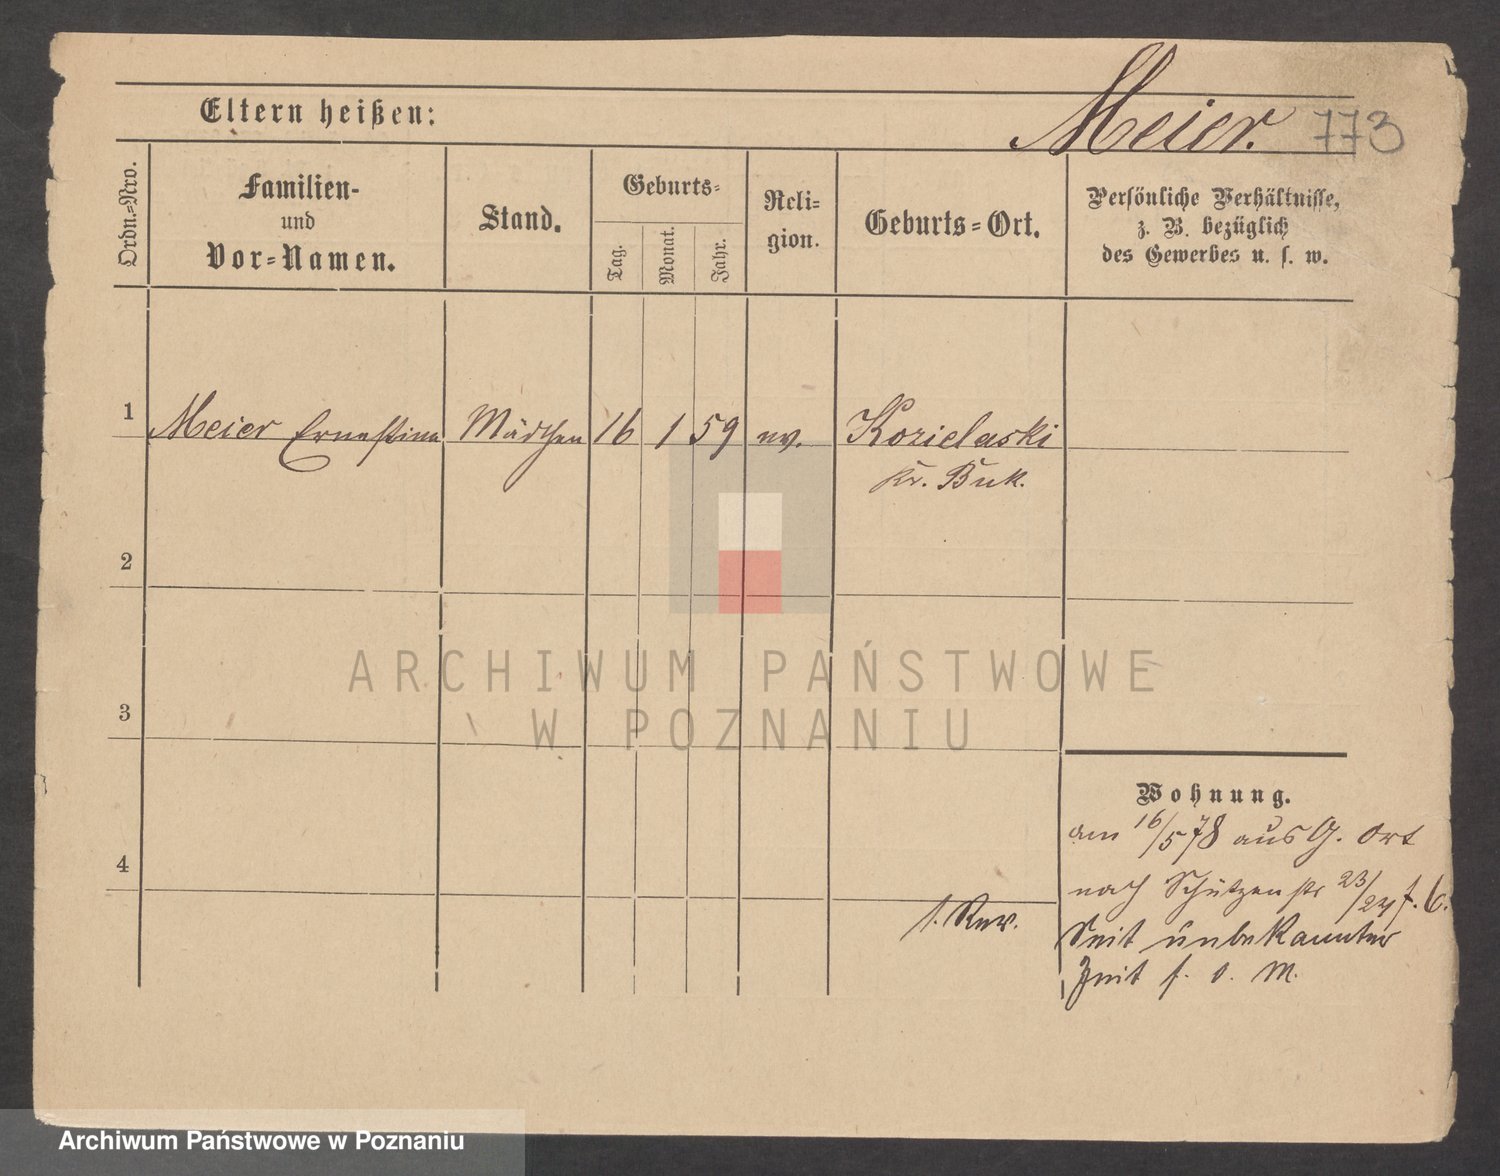 Meier. 773
Eltern heißen:
Ordn.=Nro.
Familien-
und
Vor=Namen.
Stand.
Geburts=
Tag.
Monat.
Jahr.
Reli=
gion.
Geburts=Ort.
Persönliche Verhältnisse,
z. B. bezüglich
des Gewerbes u. s. w.
1 Meier Ernestine Mädchen 16 1 59 ev. Kozielaski
Kr. Buk.
2
3
4
Wohnung.
am 16/5 78 aus G. Ort
nach Schützenstr 23/24
Seit unbekannter
Zeit f. o. M.
ARCHIWUM PAŃSTWOWE
W POZNANIU
Archiwum Państwowe w Poznaniu